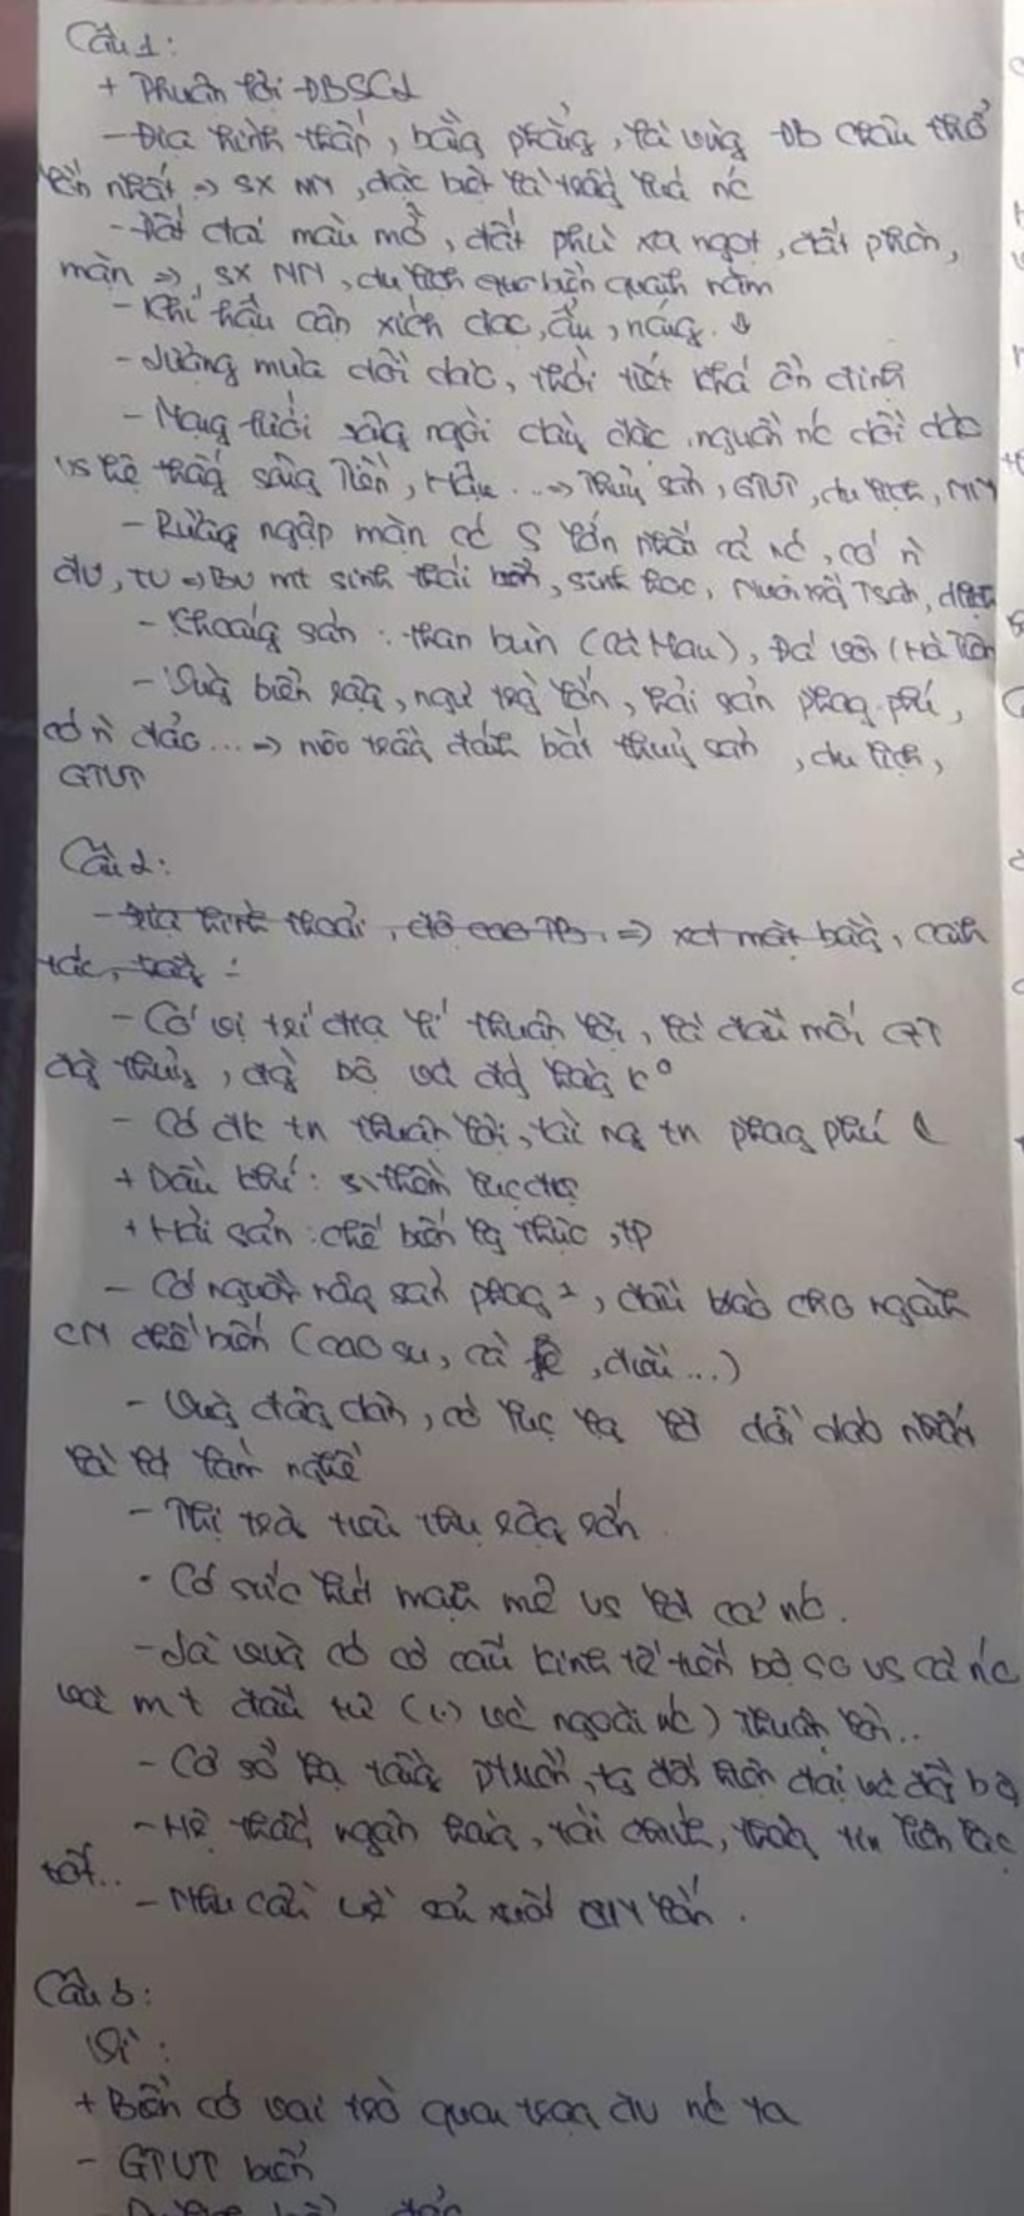 Câu 1:
+ Thuận lợi ĐBSCL
- Địa hình thấp, bằng phẳng, là vùng ĐB châu thổ
lớn nhất => SX NN, đặc biệt là trồng lúa nc
- Đất đai màu mỡ, đất phù xa ngọt, đất phèn,
mặn =>, SX NN, du lịch quanh năm
- Khí hậu cận xích đạo, ẩm, nóng.
- Lượng mưa dồi dào, thời tiết khá ổn định
- Mạng lưới sông ngòi dày đặc, nguồn nc dồi dào
vs hệ thống sông Tiền, Hậu ... => Thuỷ sản, GTVT, du lịch, NN
- Rừng ngập mặn có S lớn nhất cả nc, có n`
đv, tv => BV mt sinh thái biển, sinh học, nuôi trồng Tsản,
- Khoáng sản : than bùn (Cà Mau), Đá vôi (Hà Tiên
- Vùng biển rộng, ngư trg lớn, hải sản phong phú,
có n` đảo ... => nuôi trồng đánh bắt thuỷ sản, du lịch,
GTVT
Câu 2:
- Địa hình thoải, độ cao TB. => xd mặt bằng, canh
tác,
- Có vị trí địa lí thuận lợi, là đầu mối GT
đg thuỷ, đg bộ và đg hàng k°
- Có đk tn thuận lợi, tài ng tn phong phú
+ Dầu khí: thềm lục địa
+ Hải sản : chế biến lg thực, tp
- Có nguồn nông sản phong 2, đầu vào cho ngành
CN chế biến (cao su, cà fê, điều...)
- Vùng đông dân, có lực lg lđ dồi dào nhất
là lđ lành nghề
- Thị trg tiêu thụ rộng lớn
- Có sức hút mạnh mẽ vs lđ cả nc.
- Là vùng có cơ cấu kinh tế tiến bộ so vs cả nc
và mt đầu tư (tr và ngoài nc) thuận lợi..
- Cơ sở hạ tầng ptriển, tg đối hiện đại và đồng bộ
- Hệ thống ngân hàng, tài chính, thông tin liên lạc
tốt..
- Nhu cầu về sản xuất CN lớn.
Câu 3:
Vì :
+ Biển có vai trò quan trọng đv nc ta
- GTVT biển